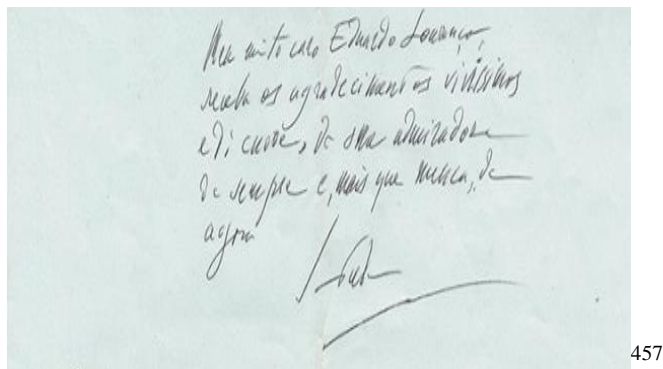 Meu muito caro Eduardo Lourenço,
receba os agradecimentos vivíssimos
e di cuore, da sua admiradora
de sempre e, mais que nunca, de
agora
457